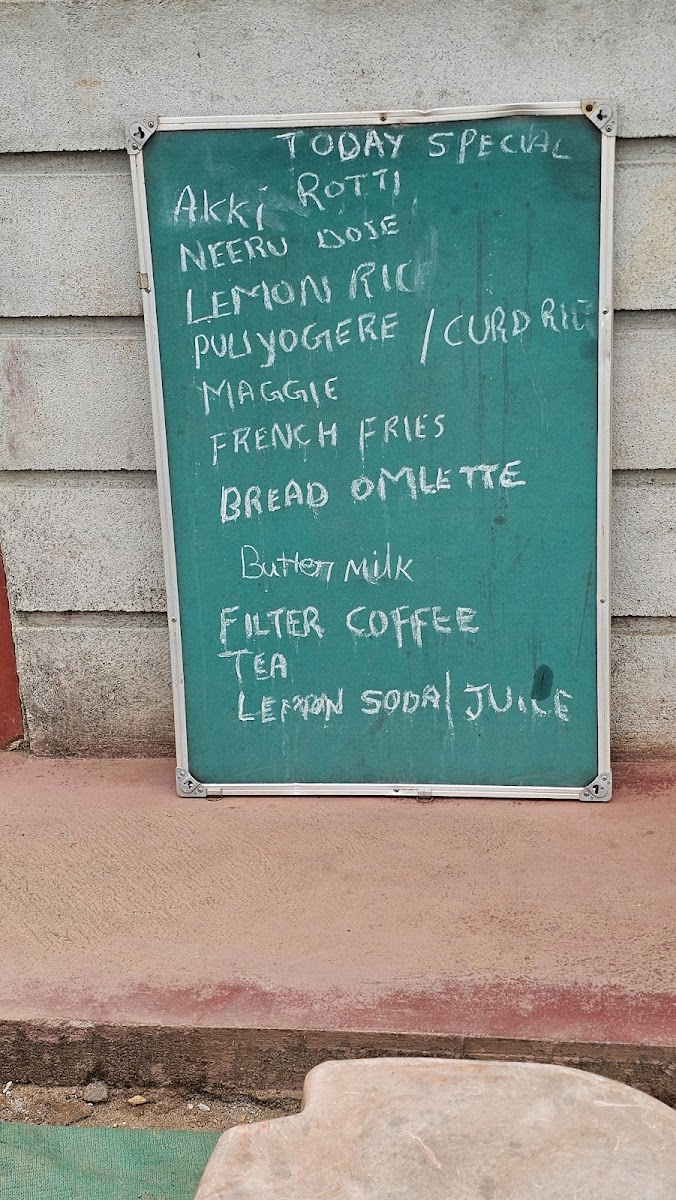 TODAY SPECIAL
AKKi ROTTI
NEERU DOSE
LEMON RIC
PULIYOGERE / CURD RICE
MAGGIE
FRENCH FRIES
BREAD OMLETTE
Butter Milk
FILTER COFFEE
TEA
LEMON SODA/ JUICE